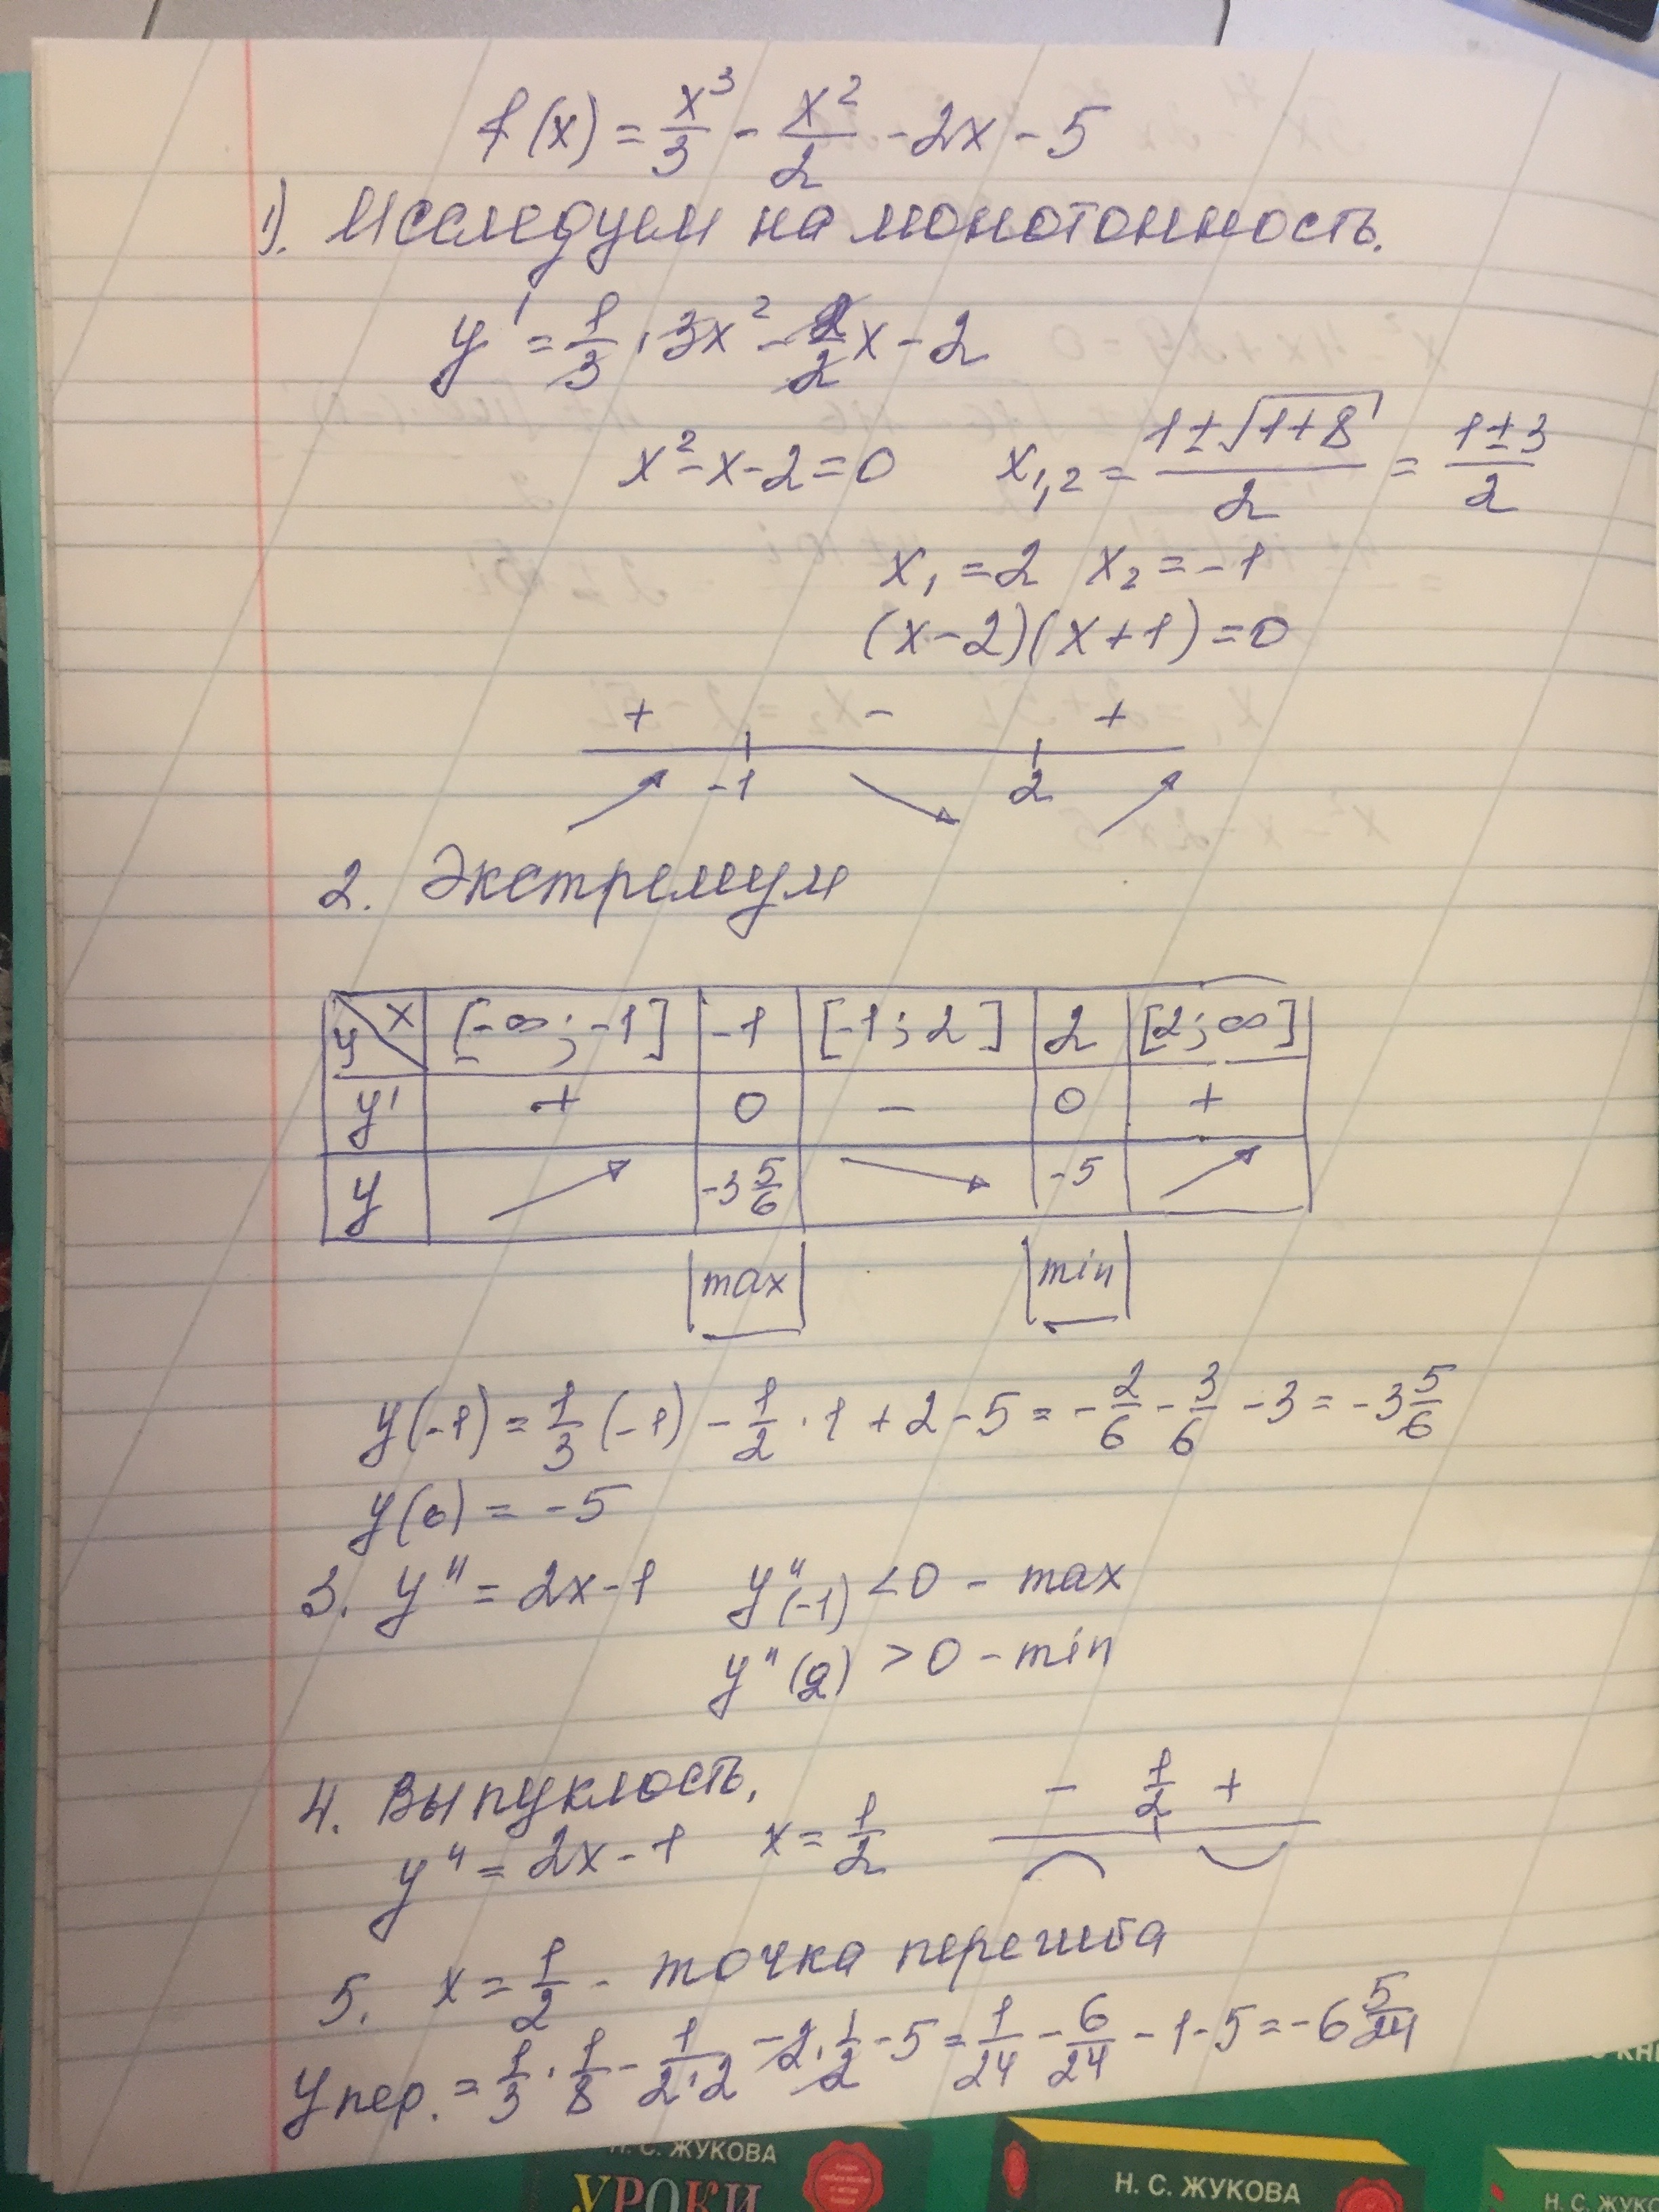 f(x) = x³/3 - x²/2 - 2x - 5
1). Исследуем на монотонность.
y' = 1/3 · 3x² - 2/2 x - 2
x² - x - 2 = 0 x₁,₂ = (1 ± √(1+8))/2 = (1 ± 3)/2
x₁ = 2 x₂ = -1
(x - 2)(x + 1) = 0
+ - +
-1 2
2. Экстремум
y x [-∞; -1] -1 [-1; 2] 2 [2; ∞]
y' + 0 - 0 +
y -3 5/6 -5
max min
y(-1) = 1/3 (-1) - 1/2 · 1 + 2 - 5 = - 2/6 - 3/6 - 3 = -3 5/6
y(0) = -5
3. y'' = 2x - 1 y''(-1) < 0 - max
y''(2) > 0 - min
4. Выпуклость.
- 1/2 +
y'' = 2x - 1 x = 1/2
5. x = 1/2 - точка перегиба
y пер. = 1/3 · 1/8 - 1/(2·2) - 2 · 1/2 - 5 = 1/24 - 6/24 - 1 - 5 = -6 5/24
Н. С. ЖУКОВА
УРОКИ
Н. С. ЖУКОВА
Н. С. ЖУКО